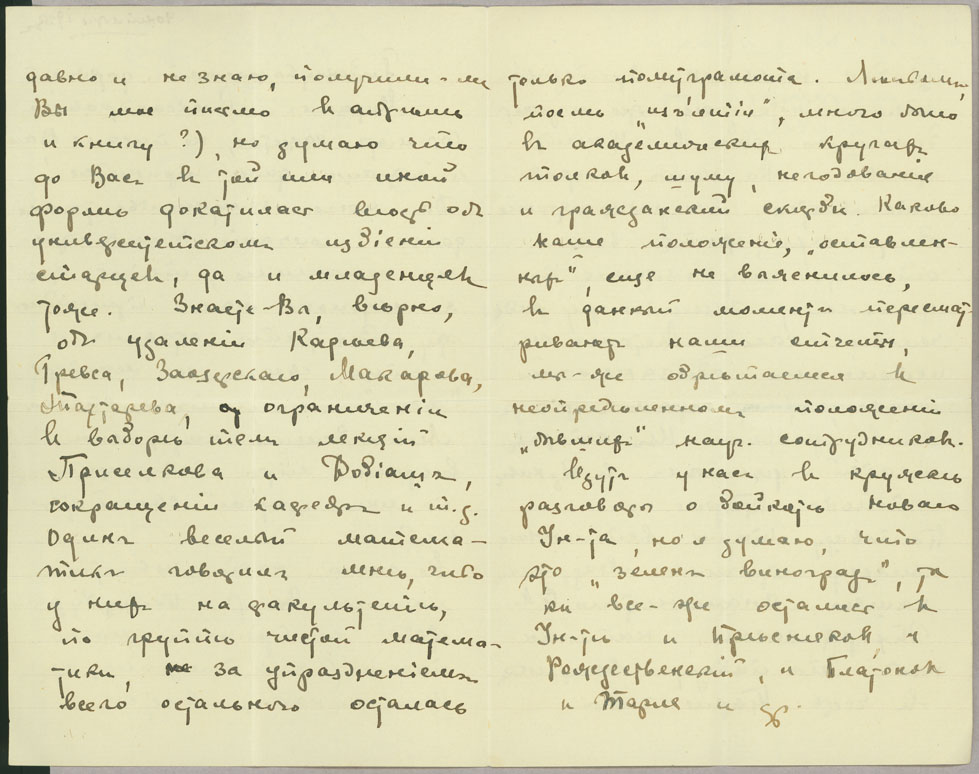 давно и не знаю, получили-ли
Вы мое письмо въ
и книгу?), но думаю что
до Васъ въ той или иной
формѣ докатилась вѣсть объ
университетскомъ избіеніи
старцевъ, да и младенцевъ
тоже. Знаете-Вы, вѣрно,
объ удаленіи Карѣева,
Гревса, Заозерскаго, Макарова,
Тахтарева, объ ограниченіи
въ выборѣ темъ лекцій
Приселкова и Добіашъ,
сокращеніи кафедръ и т.д.
Одинъ веселый матема-
тикъ говорилъ мнѣ, что
у нихъ на факультетѣ,
по группѣ чистой матема-
тики, за упраздненіемъ
всего остального осталась
только полуграмота.
послѣ „изъятія", много было
въ академическихъ кругахъ
толковъ, шуму, негодованія
и гражданской скорби. Каково
наше положеніе, „оставлен-
ныхъ", еще не выяснилось,
въ данный моментъ пересмат-
риваютъ наши отчеты,
мы-же обрѣтаемся въ
неопредѣленномъ положеніи
„бывшихъ" науч. сотрудниковъ.
Идутъ у насъ въ кружкѣ
разговоры о бойкотѣ новаго
Ин-та, но я думаю, что
это „зеленъ виноградъ", та
ки все-же остались въ
Ин-тѣ и Прѣсняковъ, и
Рождественскій, и Платоновъ
и Тарле и др.